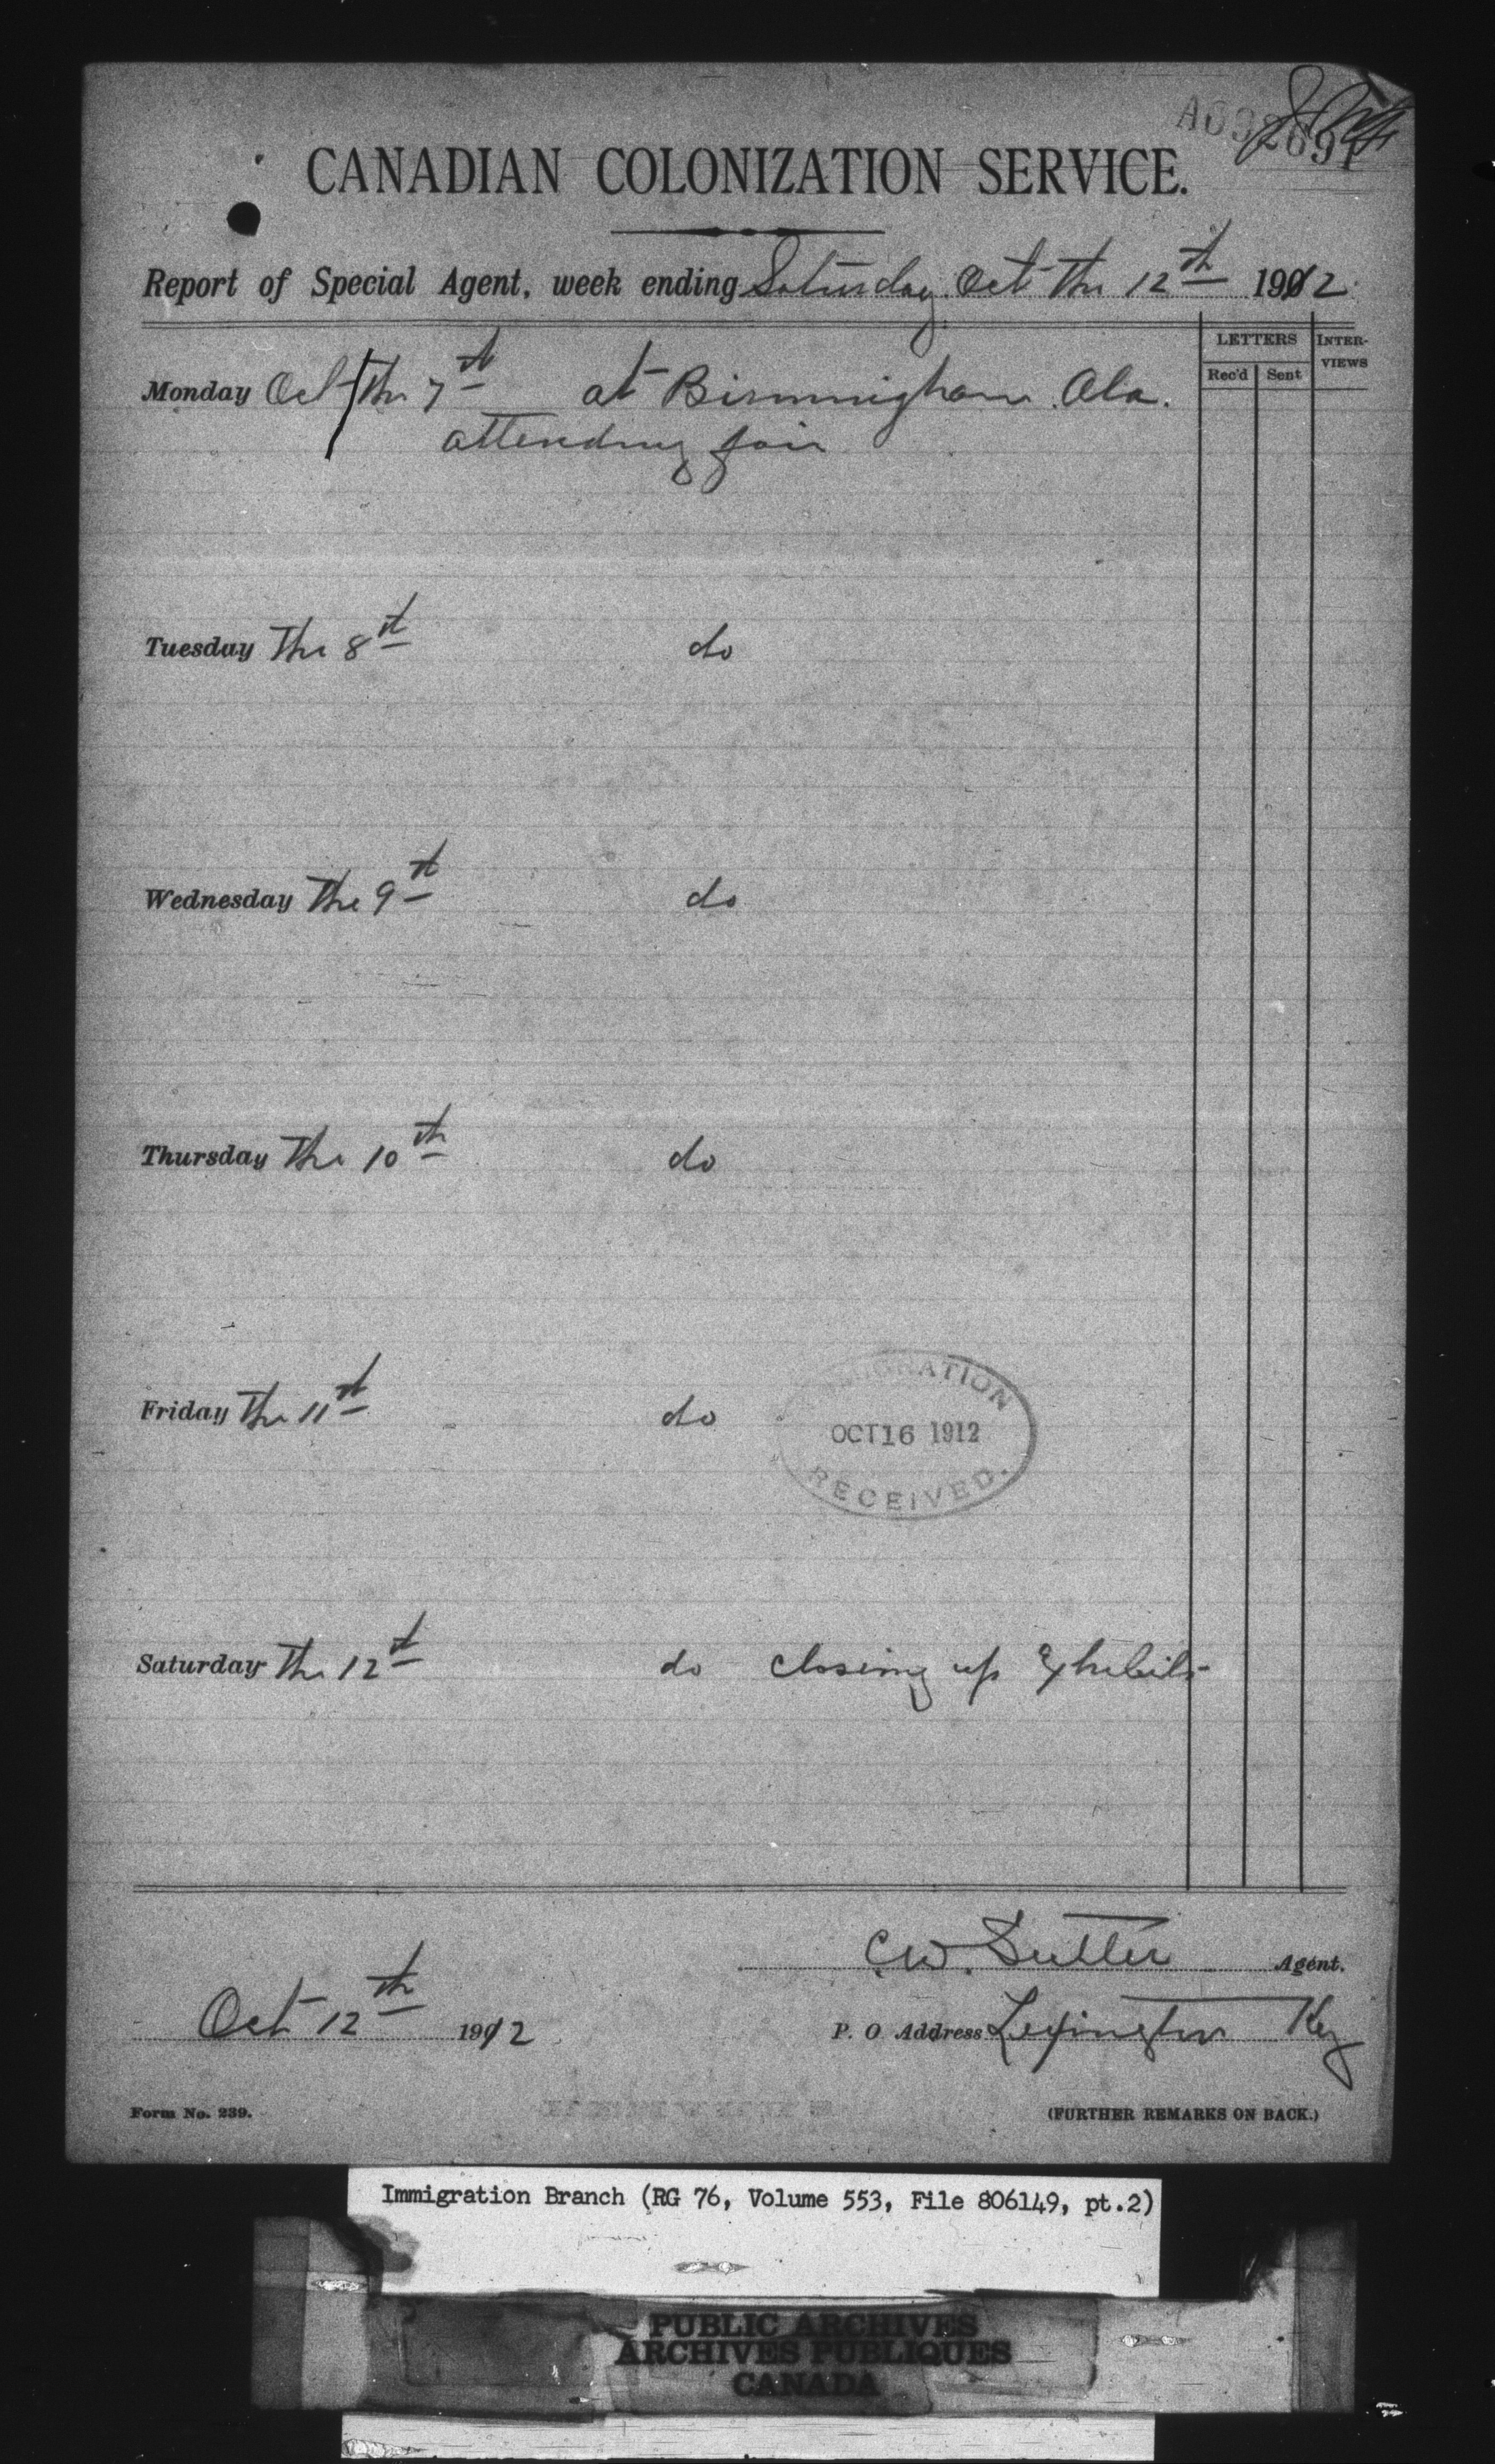 CANADIAN COLONIZATION SERVICE.
Report of Special Agent, week ending Saturday Oct the 12th 1912
LETTERS INTER-VIEWS
Rec'd Sent
Monday Oct the 7th at Birmmigham Ala.
attending fair
Tuesday the 8th do
Wednesday the 9th do
Thursday the 10th do
Friday the 11th do
IMMIGRATION
OCT 16 1912
RECEIVED.
Saturday the 12th do closing up Exhibits
C.W. Sutter Agent.
Oct 12th 1912 P. O. Address Lexington Ky
Form No. 239. (FURTHER REMARKS ON BACK.)
Immigration Branch (RG 76, Volume 553, File 806149, pt.2)
PUBLIC ARCHIVES
ARCHIVES PUBLIQUES
CANADA